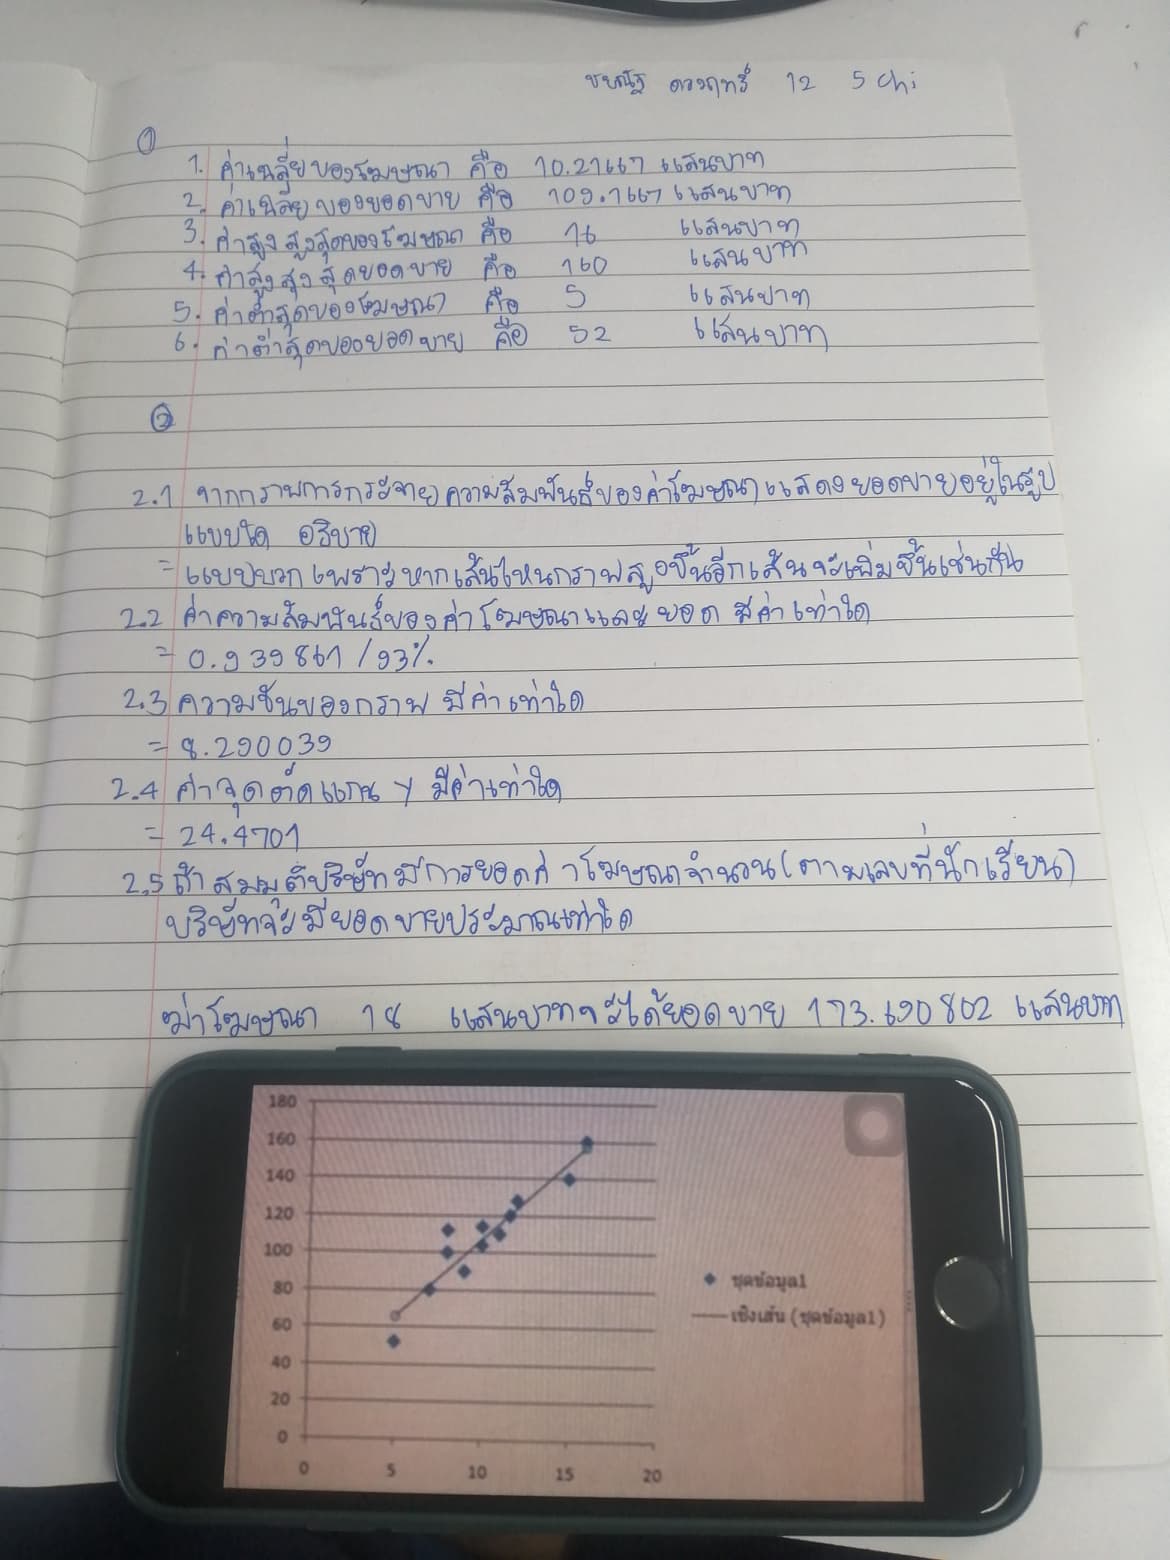 12 5 Chi
①
1. ค่าเฉลี่ยของโฆษณา คือ 10.21667 แสนบาท
2. ค่าเฉลี่ยของยอดขาย คือ 109.1667 แสนบาท
3. ค่าสูงสูงสุดของโฆษณา คือ 16 แสนบาท
4. ค่าสูงสุงสุดยอดขาย คือ 160 แสนบาท
5. ค่าต่ำสุดของโฆษณา คือ 5 แสนบาท
6. ค่าต่ำสุดของยอดขาย คือ 52 แสนบาท
②
2.1 จากกราพการกระจายความสัมพันธ์ของค่าโฆษณาแสดงยอดขายอยู่ในรูป
แบบใด อธิบาย
= แบบบวกเพราะหากเส้นไหนกราฟสูงขึ้นอีกเส้นจะเพิ่มขึ้นเช่นกัน
2.2 ค่าความสัมพันธ์ของค่าโฆษณาและยอด มีค่าเท่าใด
= 0.939861 / 93%.
2.3 ความชันของกราฟ มีค่าเท่าใด
= 8.290039
2.4 ค่าจุดตัดแกน Y มีค่าเท่าใด
= 24.4701
2.5 ถ้าสมมุติบริษัทมีการยอดค่าโฆษณาจำนวน(ตามเลขที่นักเรียน)
บริษัทจะมียอดขายประมาณเท่าใด
ฆ่าโฆษณา 18 แสนบาทจะได้ยอดขาย 173.690802 แสนบาท
180
160
140
120
100
80
60
40
20
0
0 5 10 15 20
ชุดข้อมูล1
เชิงเส้น (ชุดข้อมูล1)